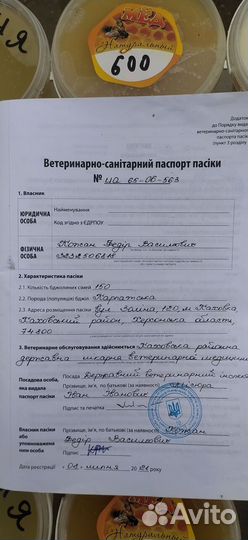 МЁД
Натуральный
600
Додаток
до Порядку вида
ветеринарно-санітарного
паспорта пасіки
(пункт 3 розділу
Ветеринарно-санітарний паспорт пасіки
№ UA 65-06-563
1. Власник
ЮРИДИЧНА ОСОБА
Найменування
Код згідно з ЄДРПОУ
ФІЗИЧНА ОСОБА
Федір Васильович
2. Характеристика пасіки
2.1. Кількість бджолиних сімей 150
2.2. Порода (популяція) бджіл Карпатська
2.3. Адреса розміщення пасіки вул. м. Каховка
Каховський район, Херсонська область,
74800
3. Ветеринарне обслуговування здійснюється Каховська районна
державна лікарня ветеринарної медицини
Посадова особа, яка видала паспорт пасіки
Посада Державний ветеринарний
Прізвище, ім'я, по батькові (за наявності)
Іван Іванович
Підпис та печатка
Власник пасіки або уповноважена ним особа
Прізвище, ім'я, по батькові (за наявності)
Федір Васильович
Підпис
Дата реєстрації 01 липня 2021 року
Avito